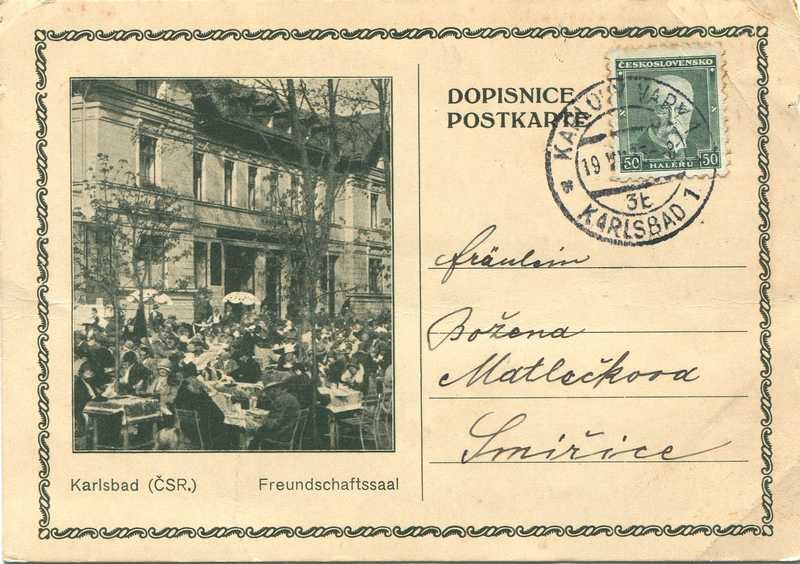 DOPISNICE
POSTKARTE
ČESKOSLOVENSKO
50 HALÉŘŮ 50
KARLOVY VARY 1
19
3t
* KARLSBAD 1
Fräulein
Božena
Matlečkova
Smiřice
Karlsbad (ČSR.) Freundschaftssaal